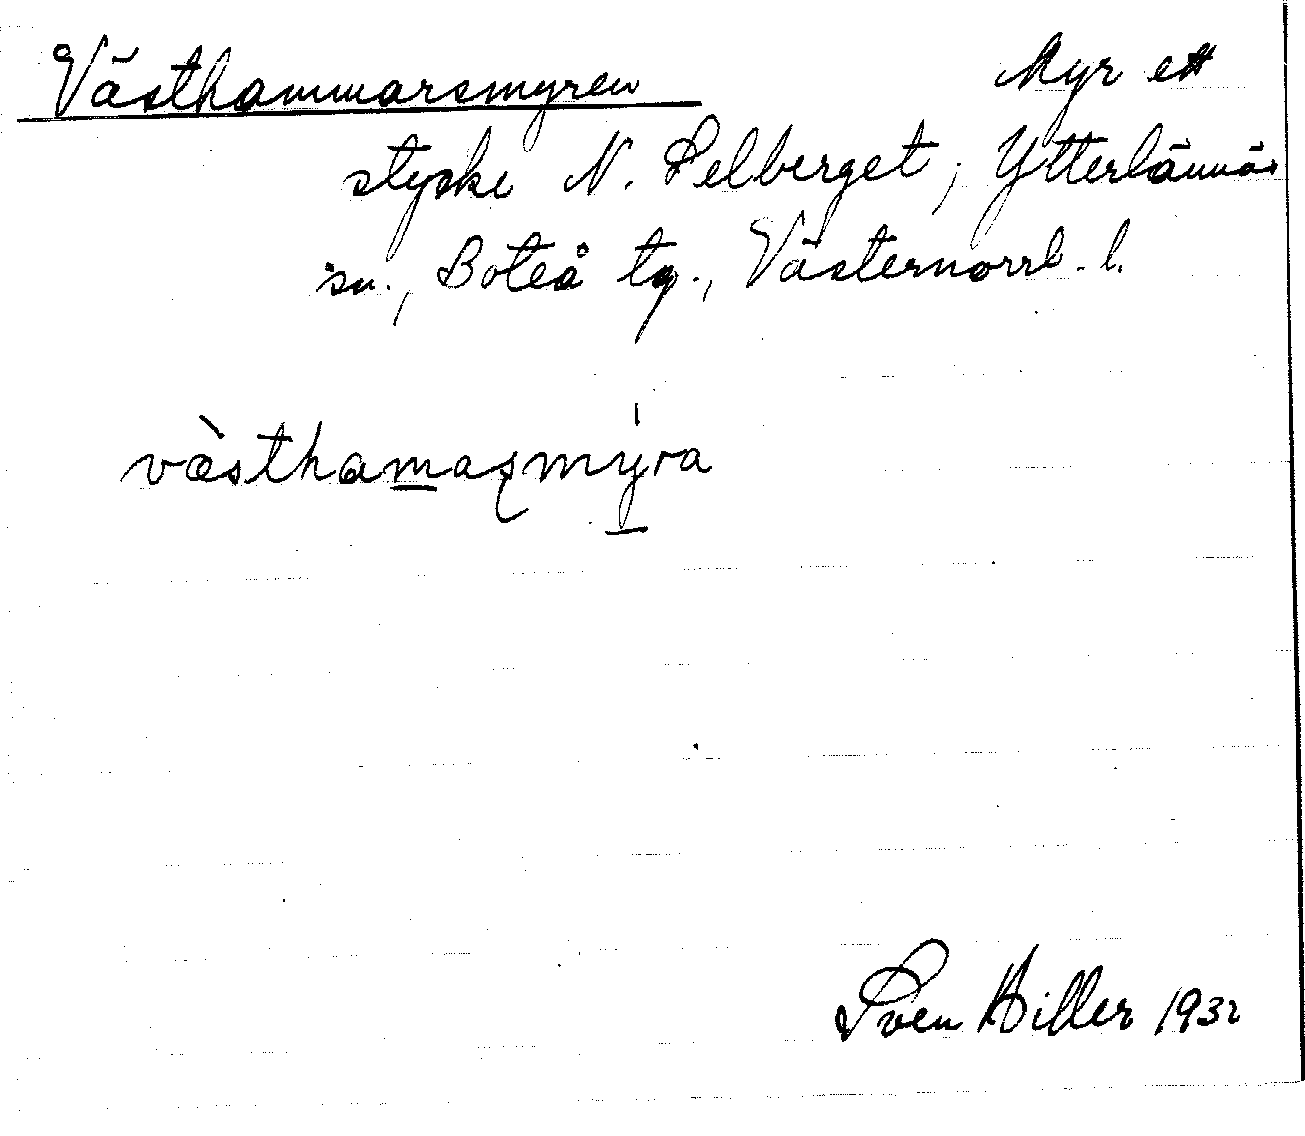 Västhammarsmyren Myr ett
stycke N. Selberget, Ytterlännäs
sn., Boteå tg., Västernorrl. l.
västhamaʂmyra
Sven Hiller 1932